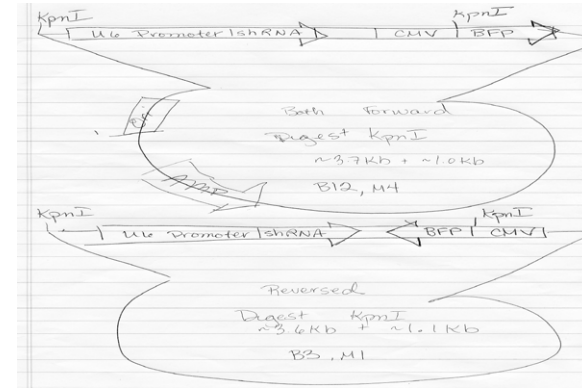 KpnI KpnI
U6 Promoter | shRNA CMV | BFP
Both Forward
Digest KpnI
~3.7Kb + ~1.0Kb
B12, M4
KpnI KpnI
U6 Promoter | shRNA BFP | CMV
Reversed
Digest KpnI
~3.6Kb + ~1.1Kb
B3, M1